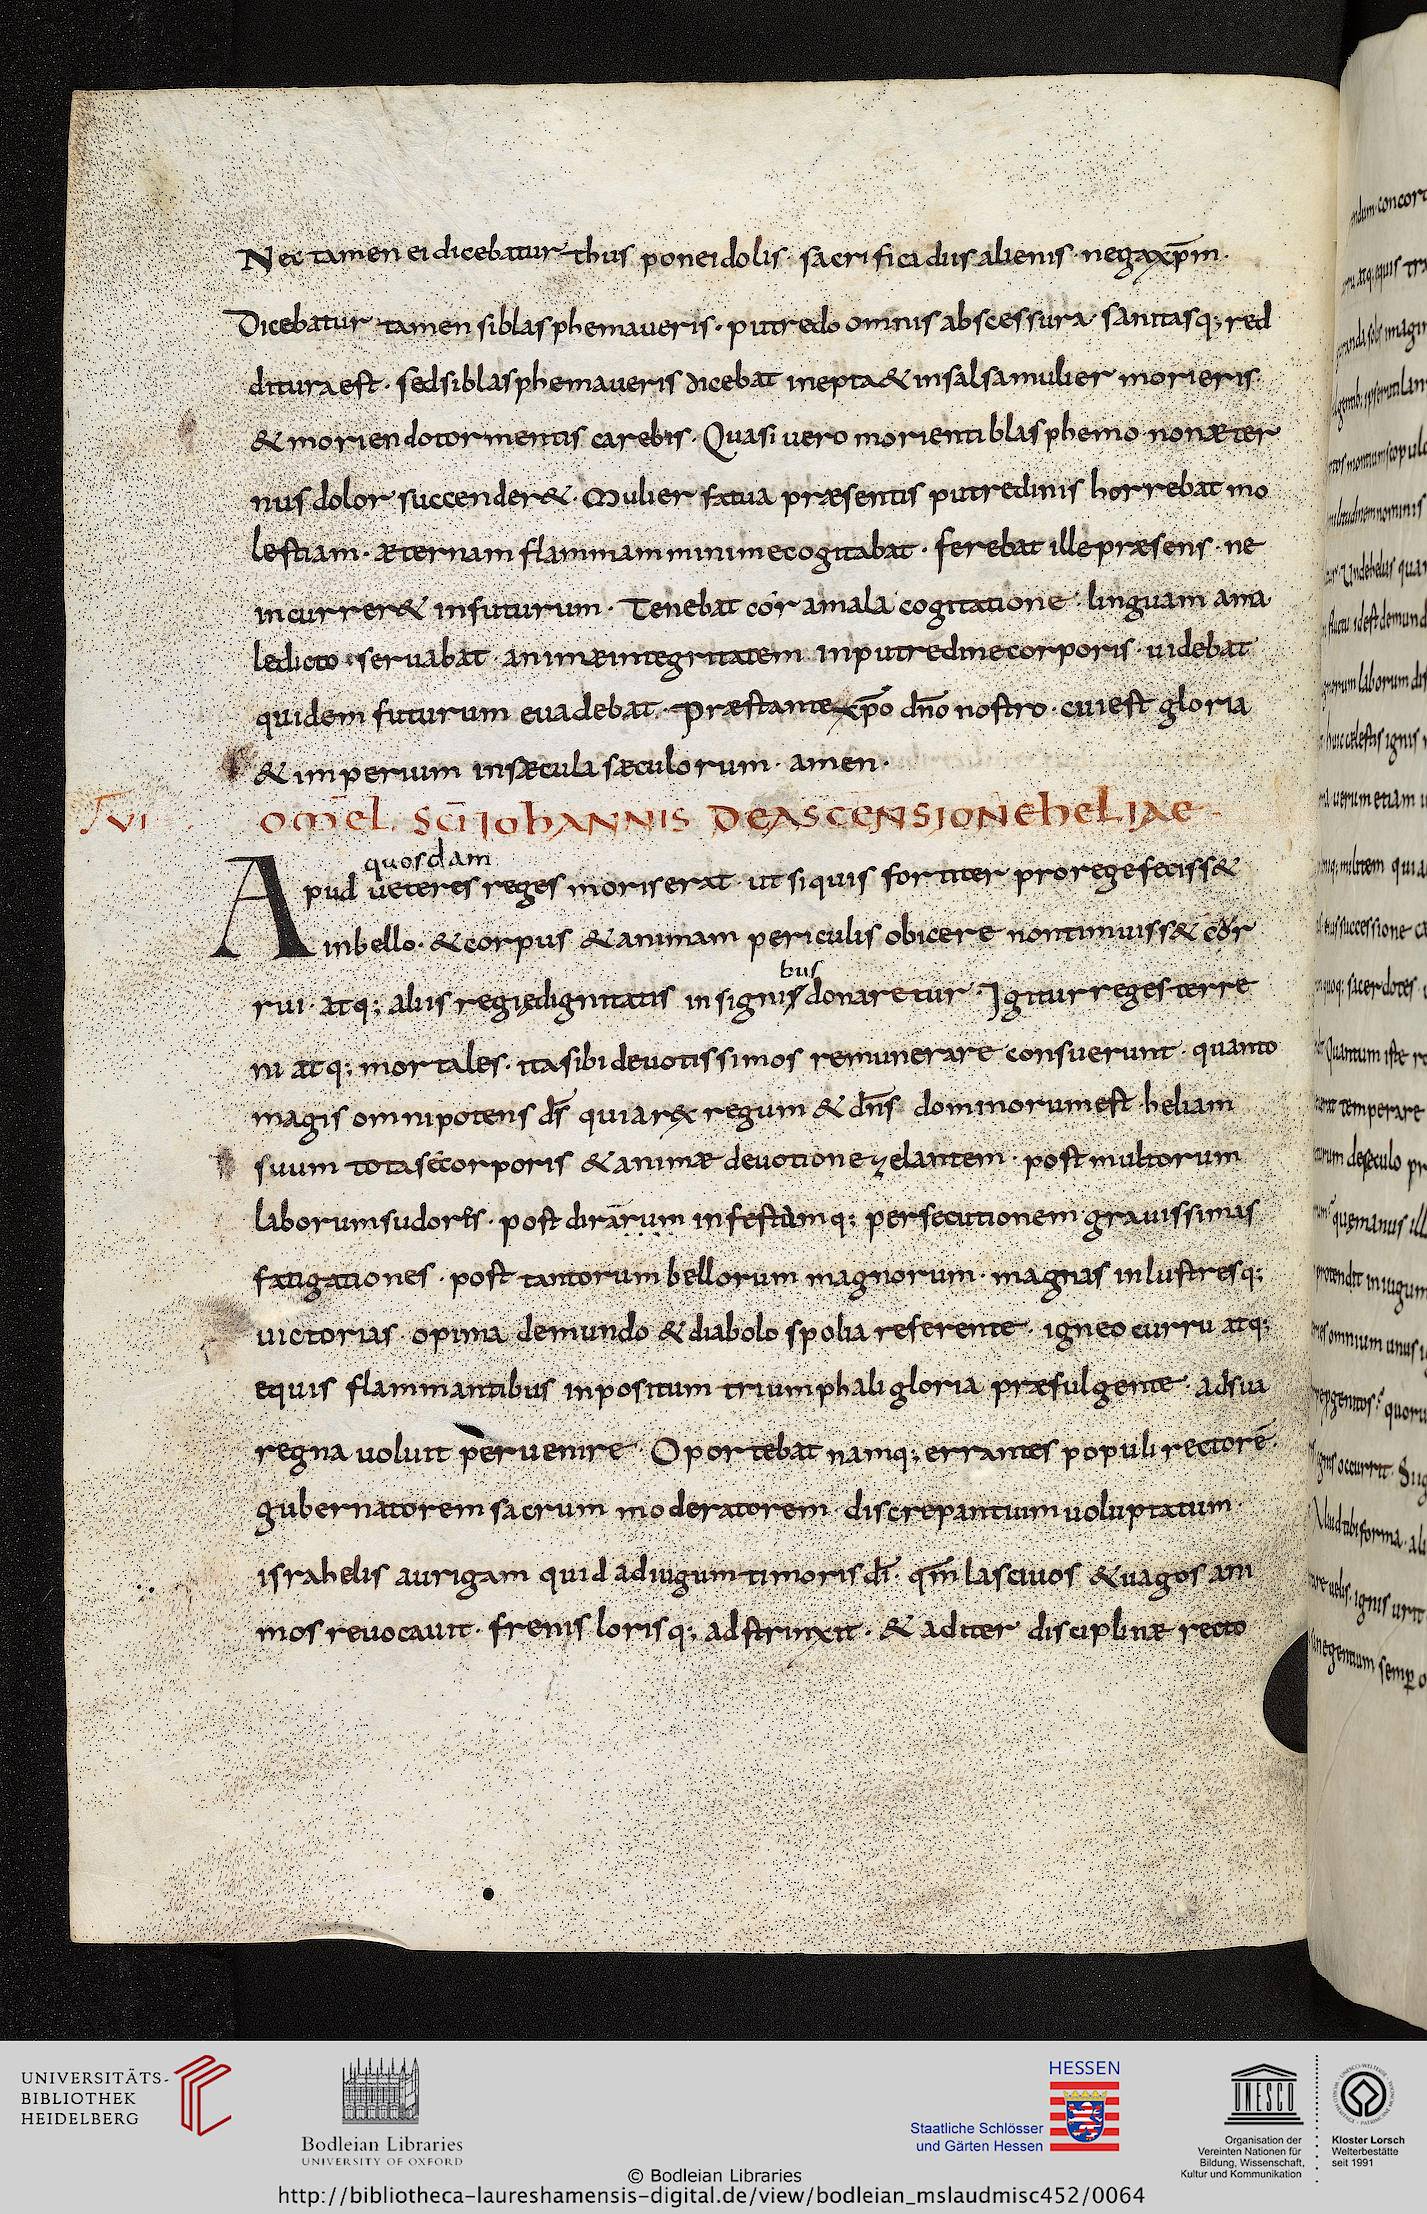 Nec tamen ei dicebatur thus pone idolis · sacrifica diis alienis · nega xp̄m ·
Dicebatur tamen si blasphemaveris · putredo omnis abscessura sanitasq; red
ditura est · sed si blasphemaveris dicebat inepta & insalsa mulier morieris ·
& moriendo tormentis carebis · Quasi vero morienti blasphemo non æter
nus dolor succender& · Mulier fatua præsentis putredinis horrebat mo
lestiam · æternam flammam minime cogitabat · ferebat ille præsens · ne
incurrer& in futurum · Tenebat cor a mala cogitatione · linguam a ma
ledicto · servabat · animæ integritatem in putredine corporis · uidebat
quidem futurum evadebat · Præstante xp̄o dn̄o nostro · cui est gloria
& imperium in sæcula sæculorum · amen ·
VI
OMEL SCI IOHANNIS DE ASCENSIONE HELIAE
quosdam
Apud veteres reges moris erat · ut si quis fortiter pro rege feciss&
in bello · & corpus & animam periculis obicere non timuiss& cor
bus
rui · atq; aliis regię dignitatis insignis donaretur · Igitur reges terre
ni atq; mortales · ita sibi devotissimos remunerare consuerunt · quanto
magis omnipotens ds̄ quia rex regum & dn̄s dominorum est heliam
suum tota se corporis & animæ devotione zelantem · post multorum
laborum sudores · post dirarum infestamq; persecutionem gravissimas
fatigationes · post tantorum bellorum magnorum · magnas inlustresq;
victorias · opima de mundo & diabolo spolia referente · igneo curru atq;
equis flammantibus inpositum triumphali gloria præfulgente · ad sua
regna voluit pervenire · Oportebat namq; errantes populi rectorē ·
gubernatorem sacrum moderatorem discrepantium voluptatum ·
israhelis aurigam quid ad iugum timoris dī · qm̄ lascivos & vagos ani
mos revocavit · frenis lorisq; adstrinxit · & ad iter disciplinæ recto
UNIVERSITÄTS-
BIBLIOTHEK
HEIDELBERG
Bodleian Libraries
UNIVERSITY OF OXFORD
HESSEN
Staatliche Schlösser
und Gärten Hessen
UNESCO
Organisation der
Vereinten Nationen für
Bildung, Wissenschaft,
Kultur und Kommunikation
Kloster Lorsch
Welterbestätte
seit 1991
© Bodleian Libraries
http://bibliotheca-laureshamensis-digital.de/view/bodleian_mslaudmisc452/0064